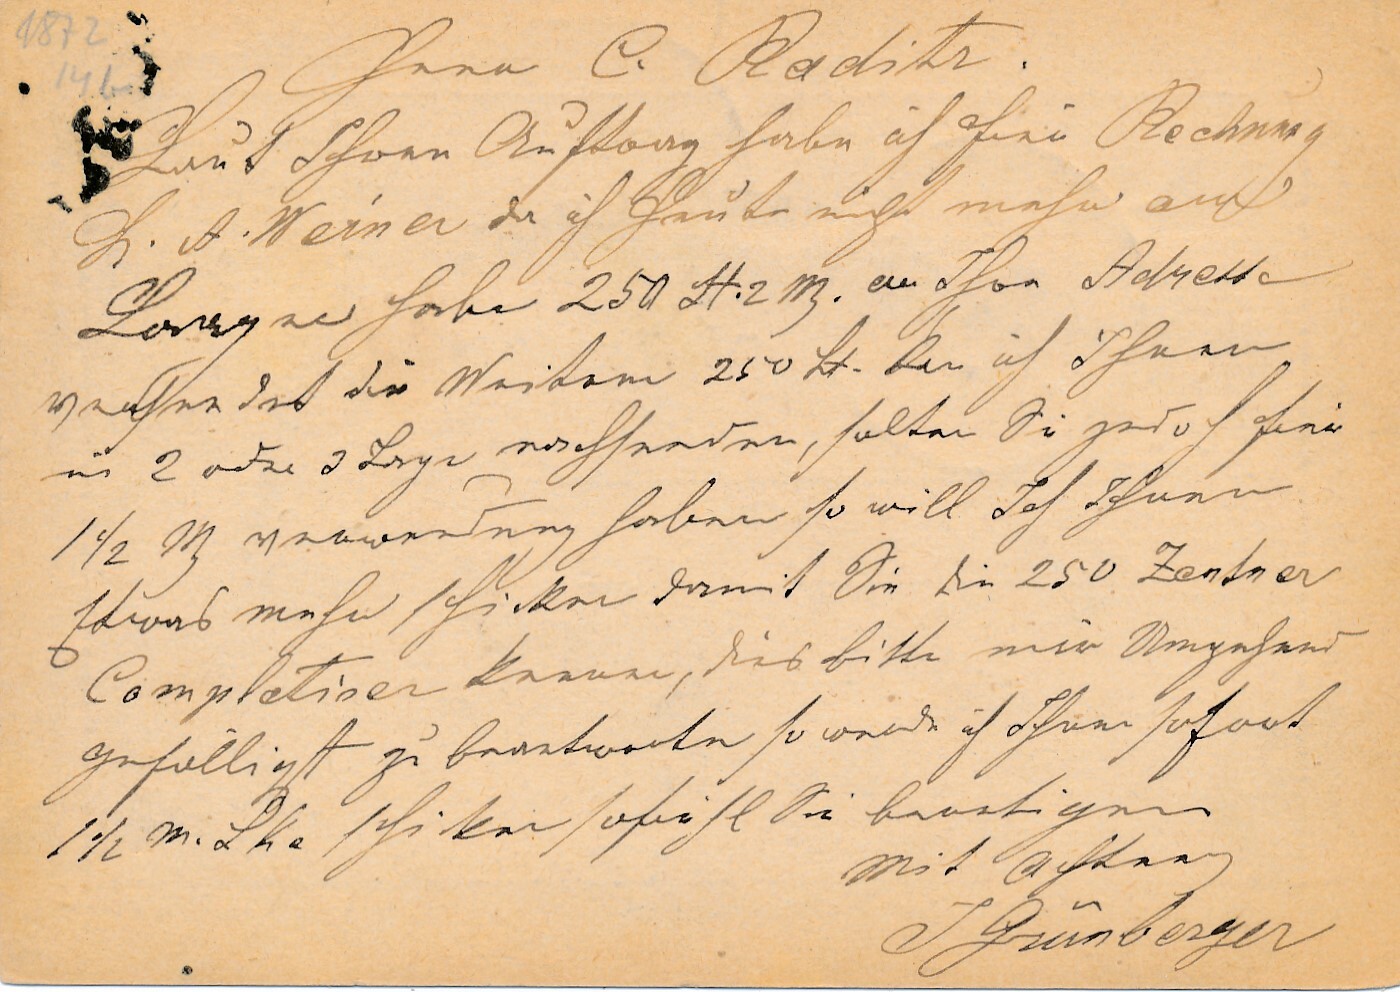 1872
14
Herrn C. Raditz.
Laut Ihrem Auftrag habe ich für Rechnung
H. A. Weiner da ich Heute nicht mehr auf
habe 250 2 M. an Ihre Adresse
die Weitern 250 ich Ihnen
in 2 oder 3 Tage nachsenden, solten Sie jedoch für
1 1/2 M verwendung haben so will Ich Ihnen
Etwas mehr schicken damit Sie die 250 Zentner
Completiren kennen, dies bitte mir Umgehend
gefälligst zu beantworten so werde ich Ihnen sofort
1 1/2 m. schiken sofiehl Sie benetigen
Mit Achtung
J Grünberger